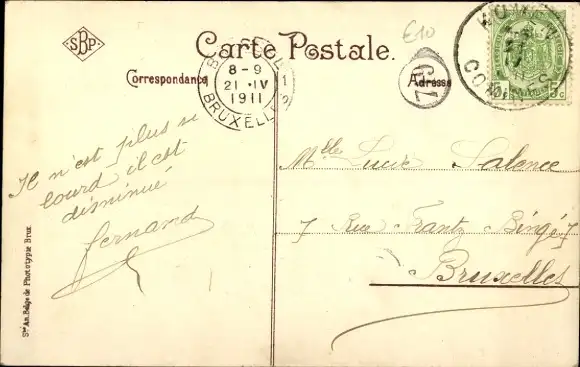 SBP
Carte Postale.
£10
Correspondance
Adresse
8-9
21 IV
1911
BRUXELLES
Il n'est plus si
lourd il est
diminué
fernand
Mlle Lucie Salence
7 Rue Frantz Bingé 7
Bruxelles
5c
Sté An. Belge de Phototypie Brux.